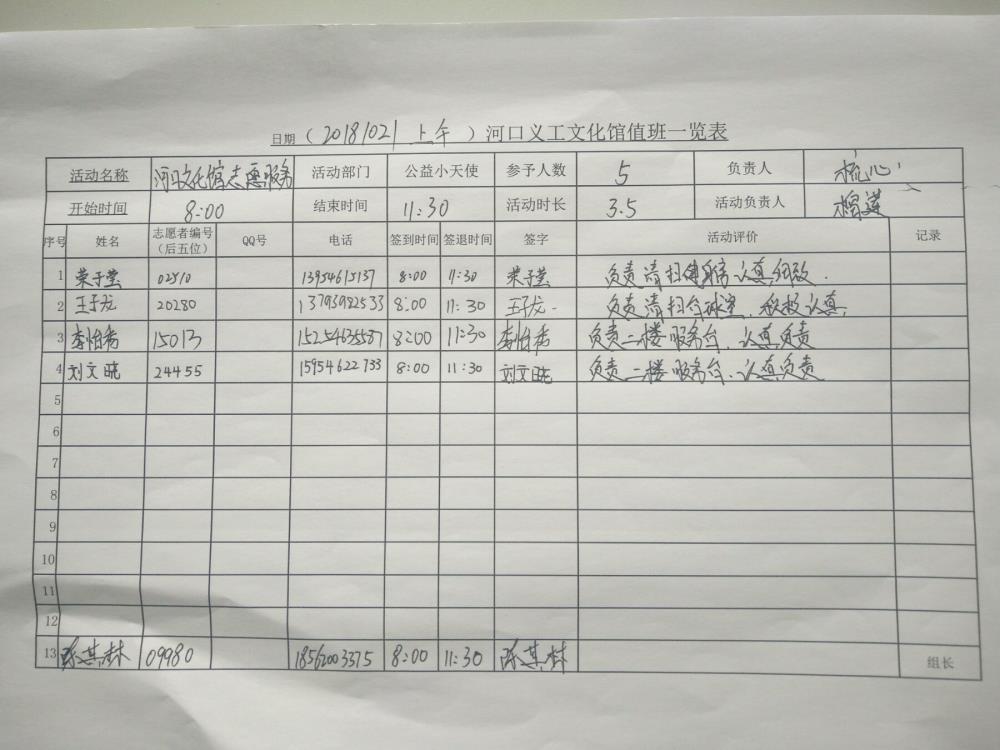 日期（20181021 上午）河口义工文化馆值班一览表
活动名称 河口文化馆志愿服务 活动部门 公益小天使 参予人数 5 负责人 梳心
开始时间 8:00 结束时间 11:30 活动时长 3.5 活动负责人 榴莲
序号 姓名 志愿者编号（后五位） QQ号 电话 签到时间 签退时间 签字 活动评价 记录
1 荣子莹 02510 13954615137 8:00 11:30 荣子莹 负责清扫健身房认真细致.
2 王子龙 20280 13793992533 8:00 11:30 王子龙 负责清扫台球室，积极认真
3 李怡秀 15013 15254635587 8:00 11:30 李怡秀 负责二楼服务台，认真负责
4 刘文晓 24455 15954622733 8:00 11:30 刘文晓 负责二楼服务台，认真负责
5
6
7
8
9
10
11
12
13 陈其林 09980 18562003375 8:00 11:30 陈其林 组长